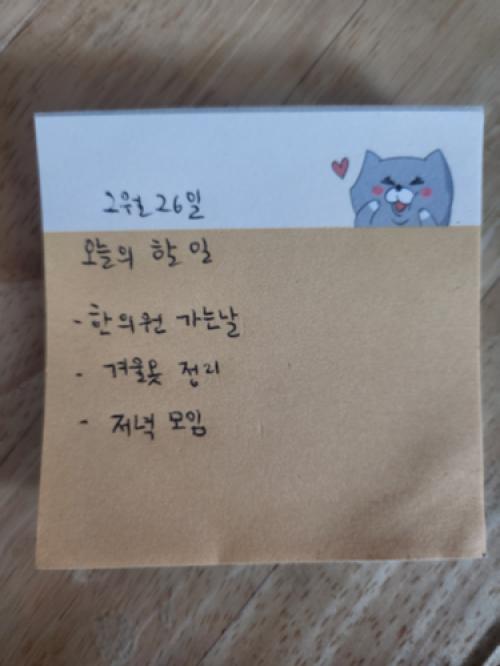 2월 26일
오늘의 할 일
- 한의원 가는날
- 겨울옷 정리
- 저녁 모임